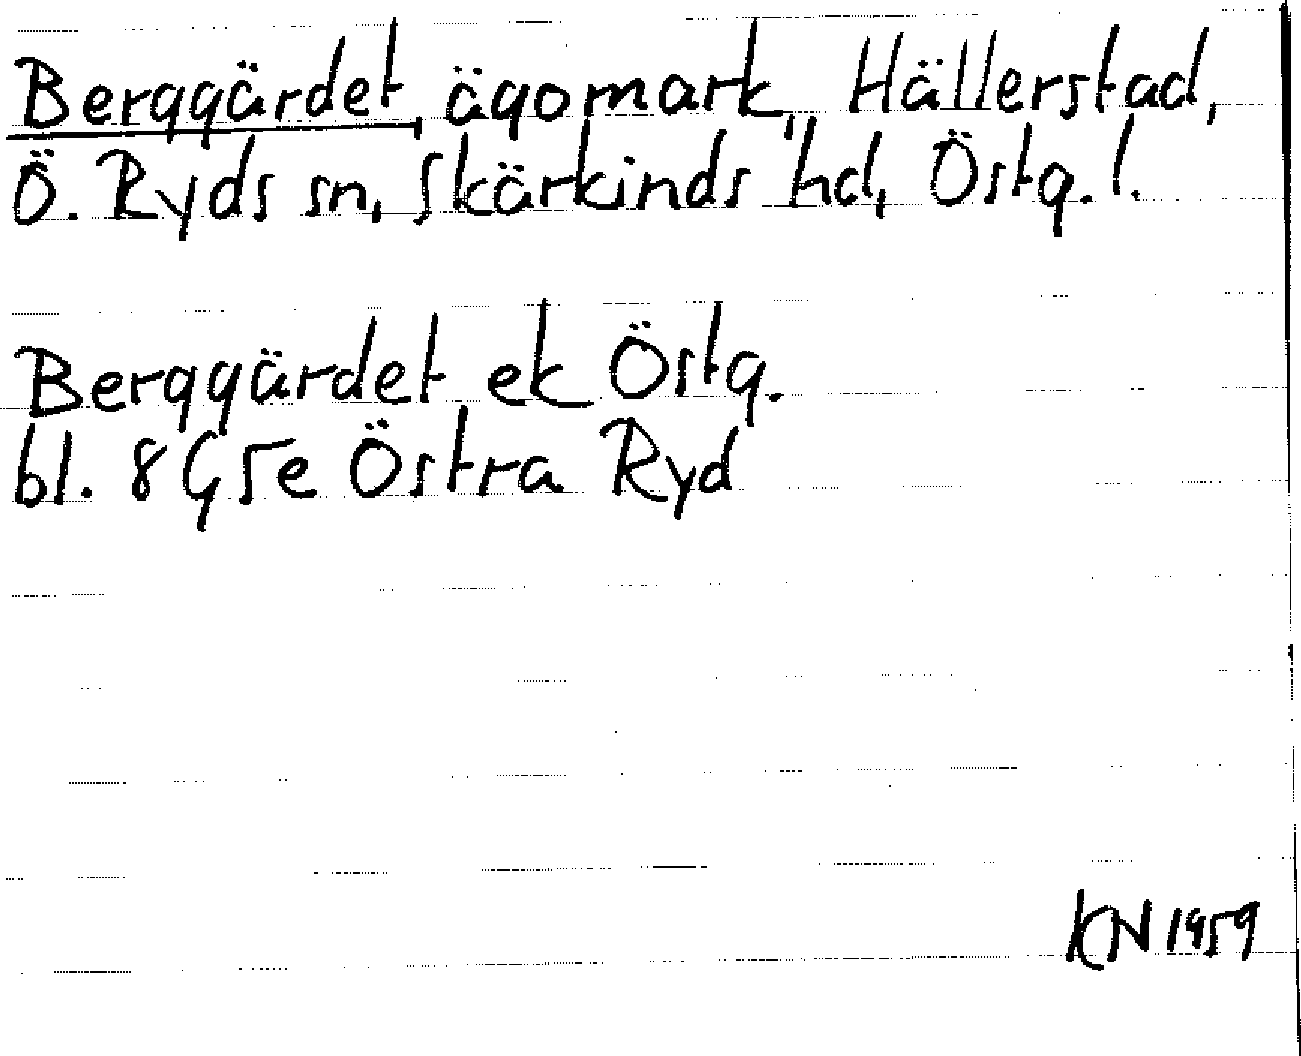 Berggärdet, ägomark, Hällerstad,
Ö. Ryds sn, Skärkinds hd, Östg. l.
Berggärdet ek Östg.
bl. 8G5e Östra Ryd
KN 1959